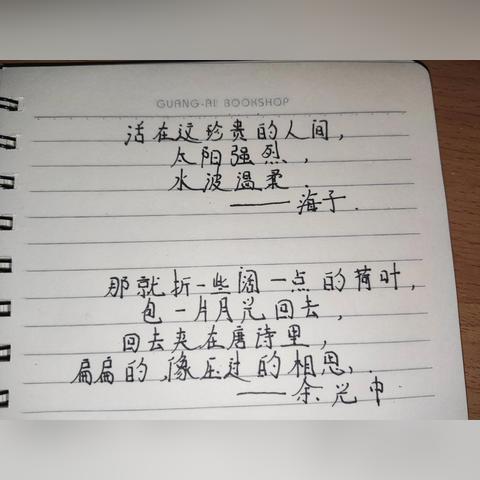 GUANG-AI BOOKSHOP
活在这珍贵的人间，
太阳强烈，
水波温柔．
——海子．
那就折一些阔一点的荷叶，
包一片月光回去，
回去夹在唐诗里，
扁扁的，像压过的相思．
——余光中